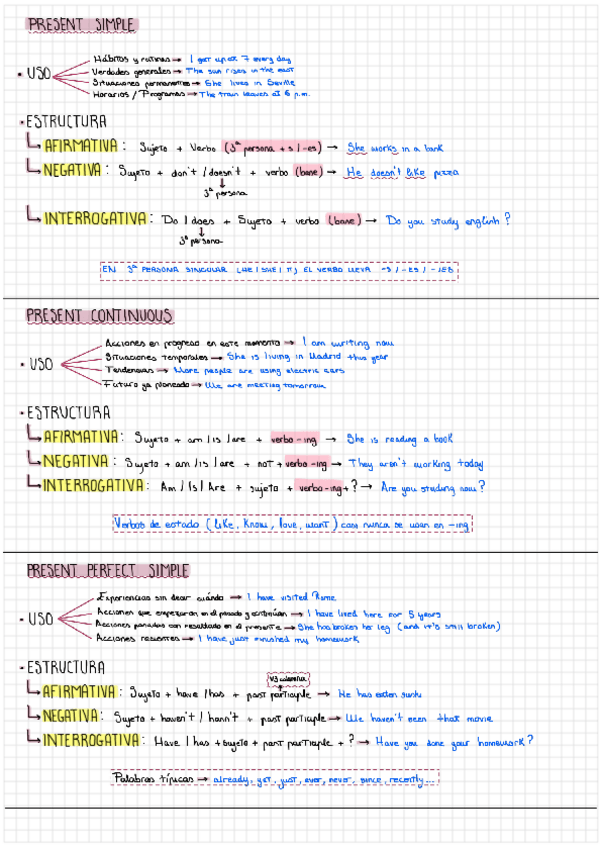 PRESENT SIMPLE
• USO
Hábitos y rutinas → I get up at 7 every day
Verdades generales → The sun rises in the east
Situaciones permanentes → She lives in Seville
Horarios / Programas → The train leaves at 6 p.m.
• ESTRUCTURA
AFIRMATIVA: Sujeto + Verbo (3ª persona + s / -es) → She works in a bank
NEGATIVA: Sujeto + don't / doesn't + verbo (base) → He doesn't like pizza
3ª persona
INTERROGATIVA: Do / does + Sujeto + verbo (base) → Do you study english?
3ª persona
EN 3ª PERSONA SINGULAR (HE / SHE / IT) EL VERBO LLEVA -S / -ES / -IES
PRESENT CONTINUOUS
• USO
Acciones en progreso en este momento → I am writing now
Situaciones temporales → She is living in Madrid this year
Tendencias → More people are using electric cars
Futuro ya planeado → We are meeting tomorrow
• ESTRUCTURA
AFIRMATIVA: Sujeto + am / is / are + verbo -ing → She is reading a book
NEGATIVA: Sujeto + am / is / are + not + verbo -ing → They aren't working today
INTERROGATIVA: Am / Is / Are + sujeto + verbo -ing + ? → Are you studing now?
Verbos de estado (like, know, love, want) casi nunca se usan en -ing
PRESENT PERFECT SIMPLE
• USO
Experiencias sin decir cuándo → I have visited Rome
Acciones que empezaron en el pasado y continúan → I have lived here for 5 years
Acciones pasadas con resultado en el presente → She has broken her leg (and it's still broken)
Acciones recientes → I have just finished my homework
• ESTRUCTURA
V3 columna
AFIRMATIVA: Sujeto + have / has + past participle → He has eaten sushi
NEGATIVA: Sujeto + haven't / hasn't + past participle → We haven't seen that movie
INTERROGATIVA: Have / has + sujeto + past participle + ? → Have you done your homework?
Palabras típicas → already, yet, just, ever, never, since, recently...